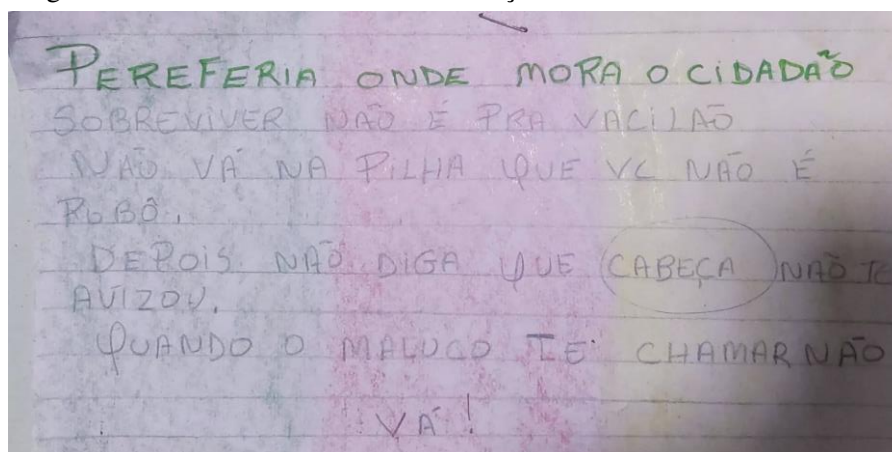 PEREFERIA ONDE MORA O CIDADÃO
SOBREVIVER NÃO É PRA VACILÃO
NÃO VÁ NA PILHA QUE VC NÃO É
ROBÔ.
DEPOIS NÃO DIGA QUE CABEÇA NÃO TE
AVIZOU.
QUANDO O MALUCO TE CHAMAR NÃO
VÁ!